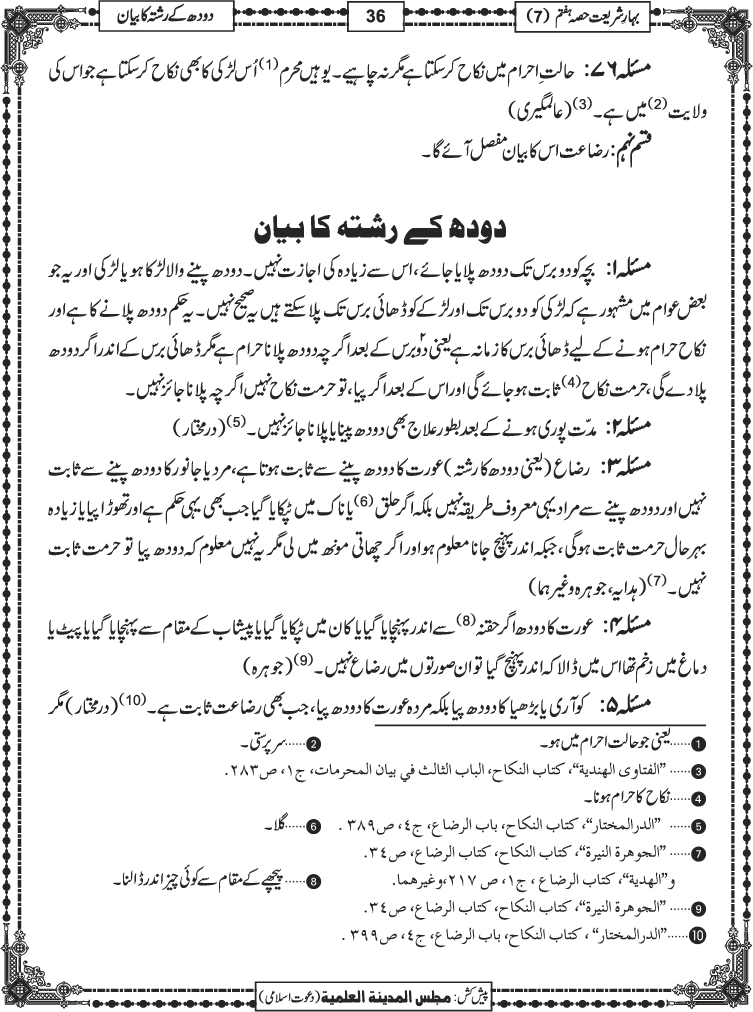 بہارِ شریعت حصہ ہفتم (7)
36
دودھ کے رشتہ کا بیان
مسئلہ ۷۶: حالتِ احرام میں نکاح کرسکتا ہے مگر نہ چاہیے۔ یوہیں محرم (1) اُس لڑکی کا بھی نکاح کرسکتا ہے جو اس کی
ولایت (2) میں ہے۔ (3) (عالمگیری)
قسم نہم: رضاعت اس کا بیان مفصل آئے گا۔
دودھ کے رشتہ کا بیان
مسئلہ ۱: بچہ کو دو برس تک دودھ پلایا جائے، اس سے زیادہ کی اجازت نہیں۔ دودھ پینے والا لڑکا ہو یا لڑکی اور یہ جو
بعض عوام میں مشہور ہے کہ لڑکی کو دو برس تک اور لڑکے کو ڈھائی برس تک پلا سکتے ہیں یہ صحیح نہیں۔ یہ حکم دودھ پلانے کا ہے اور
نکاح حرام ہونے کے لیے ڈھائی برس کا زمانہ ہے یعنی دو۲ برس کے بعد اگرچہ دودھ پلانا حرام ہے مگر ڈھائی برس کے اندر اگر دودھ
پلا دے گی، حرمت نکاح (4) ثابت ہو جائے گی اور اس کے بعد اگر پیا، تو حرمت نکاح نہیں اگرچہ پلانا جائز نہیں۔
مسئلہ ۲: مدّت پوری ہونے کے بعد بطور علاج بھی دودھ پینا یا پلانا جائز نہیں۔ (5) (درمختار)
مسئلہ ۳: رضاع (یعنی دودھ کا رشتہ) عورت کا دودھ پینے سے ثابت ہوتا ہے، مرد یا جانور کا دودھ پینے سے ثابت
نہیں اور دودھ پینے سے مراد یہی معروف طریقہ نہیں بلکہ اگر حلق (6) یا ناک میں ٹپکایا گیا جب بھی یہی حکم ہے اور تھوڑا پیا یا زیادہ
بہرحال حرمت ثابت ہوگی، جبکہ اندر پہنچ جانا معلوم ہو اور اگر چھاتی مونھ میں لی مگر یہ نہیں معلوم کہ دودھ پیا تو حرمت ثابت
نہیں۔ (7) (ہدایہ، جوہرہ وغیرہما)
مسئلہ ۴: عورت کا دودھ اگر حقنہ (8) سے اندر پہنچایا گیا یا کان میں ٹپکایا گیا یا پیشاب کے مقام سے پہنچایا گیا یا پیٹ یا
دماغ میں زخم تھا اس میں ڈالا کہ اندر پہنچ گیا تو ان صورتوں میں رضاع نہیں۔ (9) (جوہرہ)
مسئلہ ۵: کوآری یا بڑھیا کا دودھ پیا بلکہ مردہ عورت کا دودھ پیا، جب بھی رضاعت ثابت ہے۔ (10) (درمختار) مگر
1 ......یعنی جو حالت احرام میں ہو۔ 2 ......سرپرستی۔
3 ......”الفتاوی الهندية“، كتاب النكاح، الباب الثالث في بيان المحرمات، ج١، ص٢٨٣.
4 ......نکاح کا حرام ہونا۔
5 ...... ”الدرالمختار“، كتاب النكاح، باب الرضاع، ج٤، ص٣٨٩ . 6 ......گلا۔
7 ......”الجوهرة النيرة“، كتاب النكاح، كتاب الرضاع، ص٣٤.
و”الهدية“، كتاب الرضاع ، ج١، ص ٢١٧،وغيرهما. 8 ......پیچھے کے مقام سے کوئی چیز اندر ڈالنا۔
9 ......”الجوهرة النيرة“، كتاب النكاح، كتاب الرضاع، ص٣٤.
10 ......”الدرالمختار“ ، كتاب النكاح، باب الرضاع، ج٤، ص٣٩٩ .
پیش کش: مجلس المدينة العلمية (دعوت اسلامی)